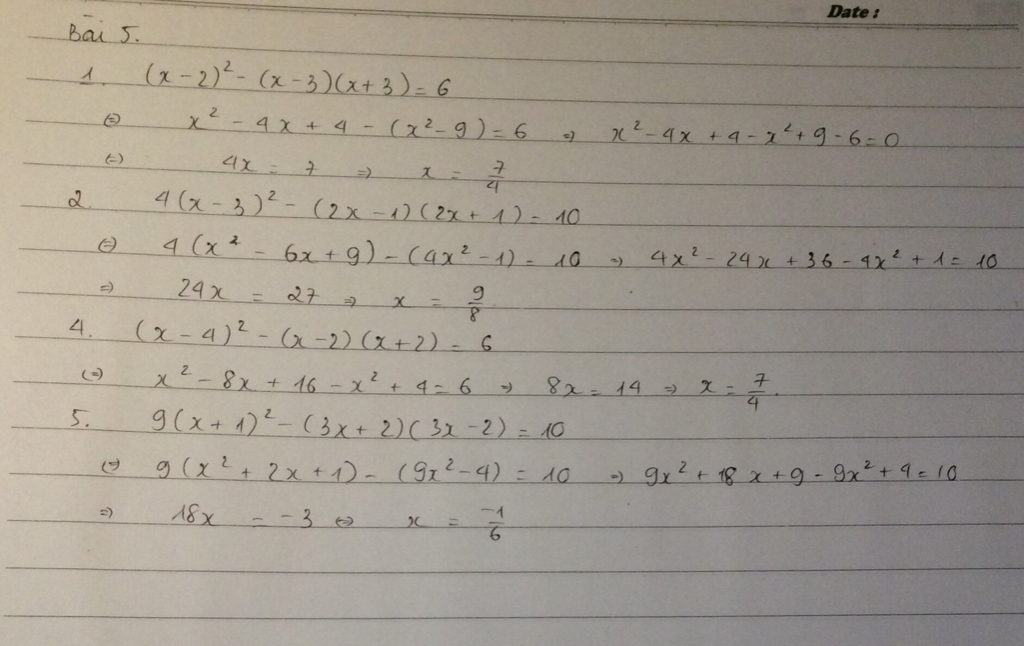 Date :
Bài 5.
1. (x - 2)² - (x - 3)(x + 3) = 6
⇔ x² - 4x + 4 - (x² - 9) = 6 ⇒ x² - 4x + 4 - x² + 9 - 6 = 0
⇔ 4x = 7 ⇒ x = 7/4
2. 4(x - 3)² - (2x - 1)(2x + 1) = 10
⇔ 4(x² - 6x + 9) - (4x² - 1) = 10 ⇒ 4x² - 24x + 36 - 4x² + 1 = 10
⇒ 24x = 27 ⇒ x = 9/8
4. (x - 4)² - (x - 2)(x + 2) = 6
⇔ x² - 8x + 16 - x² + 4 = 6 ⇒ 8x = 14 ⇒ x = 7/4.
5. 9(x + 1)² - (3x + 2)(3x - 2) = 10
⇔ 9(x² + 2x + 1) - (9x² - 4) = 10 ⇒ 9x² + 18x + 9 - 9x² + 4 = 10
⇒ 18x = -3 ⇔ x = -1/6